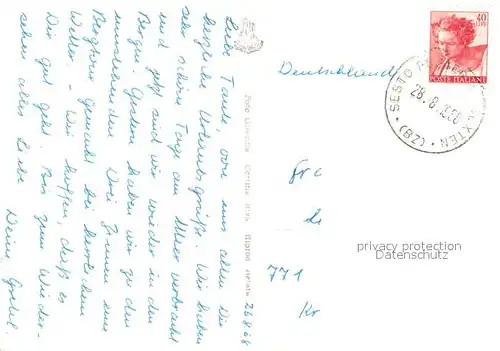 Liebe Tante, von uns allen Dir
herzliche Urlaubsgrüße. Wir haben
sehr schöne Tage am Meer verbracht
und jetzt sind wir wieder in den
Bergen. Gestern haben wir zu den
Drei Zinnen eine
Bergtour gemacht bei herrlichem
Wetter. - Wir hoffen, daß es
Dir gut geht. Bis zum Wieder-
sehen alles Liebe
Deine Gretel.
26868
Deutschland
40
LIRE
POSTE ITALIANE
SESTO
SEXTEN
(BZ)
28.8.1968
Fr
771
Kr
privacy protection
www.ansichtskartenversand.com